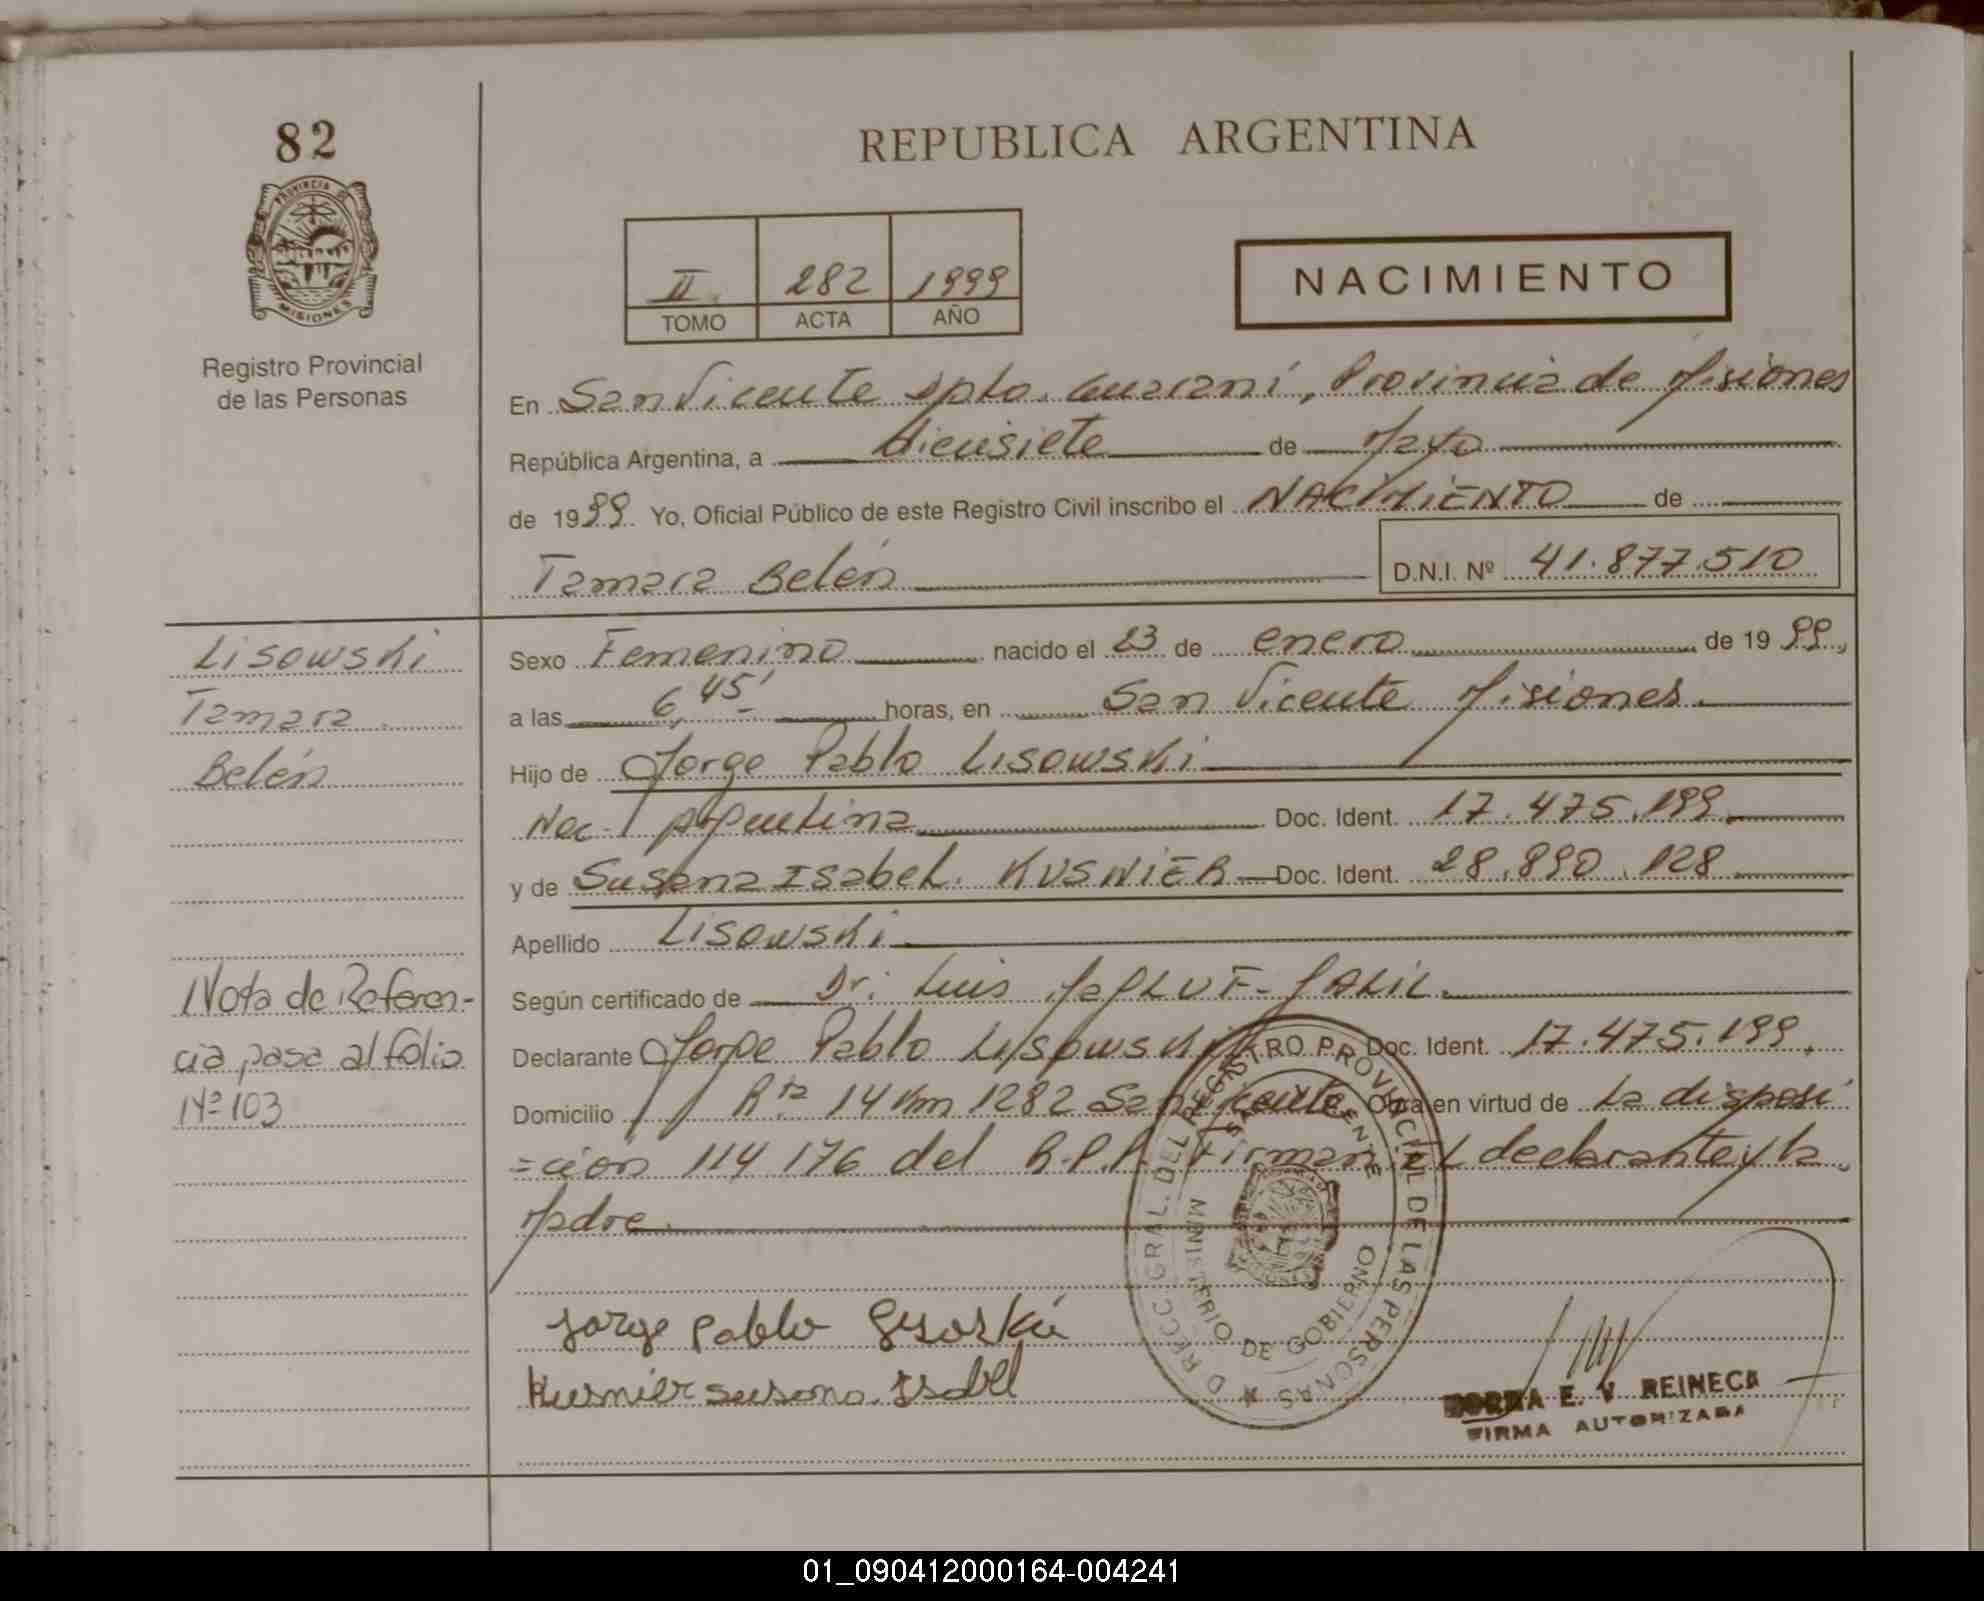 82
PROVINCIA DE
MISIONES
Registro Provincial
de las Personas
REPUBLICA ARGENTINA
II 282 1999
TOMO ACTA AÑO
NACIMIENTO
En San Vicente Dpto. Guaraní, Provincia de Misiones
República Argentina, a diecisiete de Mayo
de 1999. Yo, Oficial Público de este Registro Civil inscribo el NACIMIENTO de
Tamara Belén D.N.I. Nº 41.877.510
Lisowski
Tamara
Belén
Sexo Femenino nacido el 23 de enero de 1999,
a las 6,45' horas, en San Vicente Misiones.
Hijo de Jorge Pablo Lisowski
Nac. Argentina Doc. Ident. 17.475.199
y de Susana Isabel KUSNIER Doc. Ident. 28.890.128
Apellido Lisowski
Según certificado de Dr. Luis
Declarante Jorge Pablo Lisowski Doc. Ident. 17.475.199.
Domicilio Rta 14 Km 1282 San Vicente Obra en virtud de La disposi
=cion 114/176 del R.P.P. Firman el declarante y la
Madre.
Nota de Referen-
cia, pasa al folio
Nº 103
Jorge Pablo
Kusnier Susana Isabel
DIRECC. GRAL. DEL REGISTRO PROVINCIAL DE LAS PERSONAS
SAN VICENTE
MINISTERIO DE GOBIERNO
E. V. REINECK
FIRMA AUTORIZADA
01_090412000164-004241